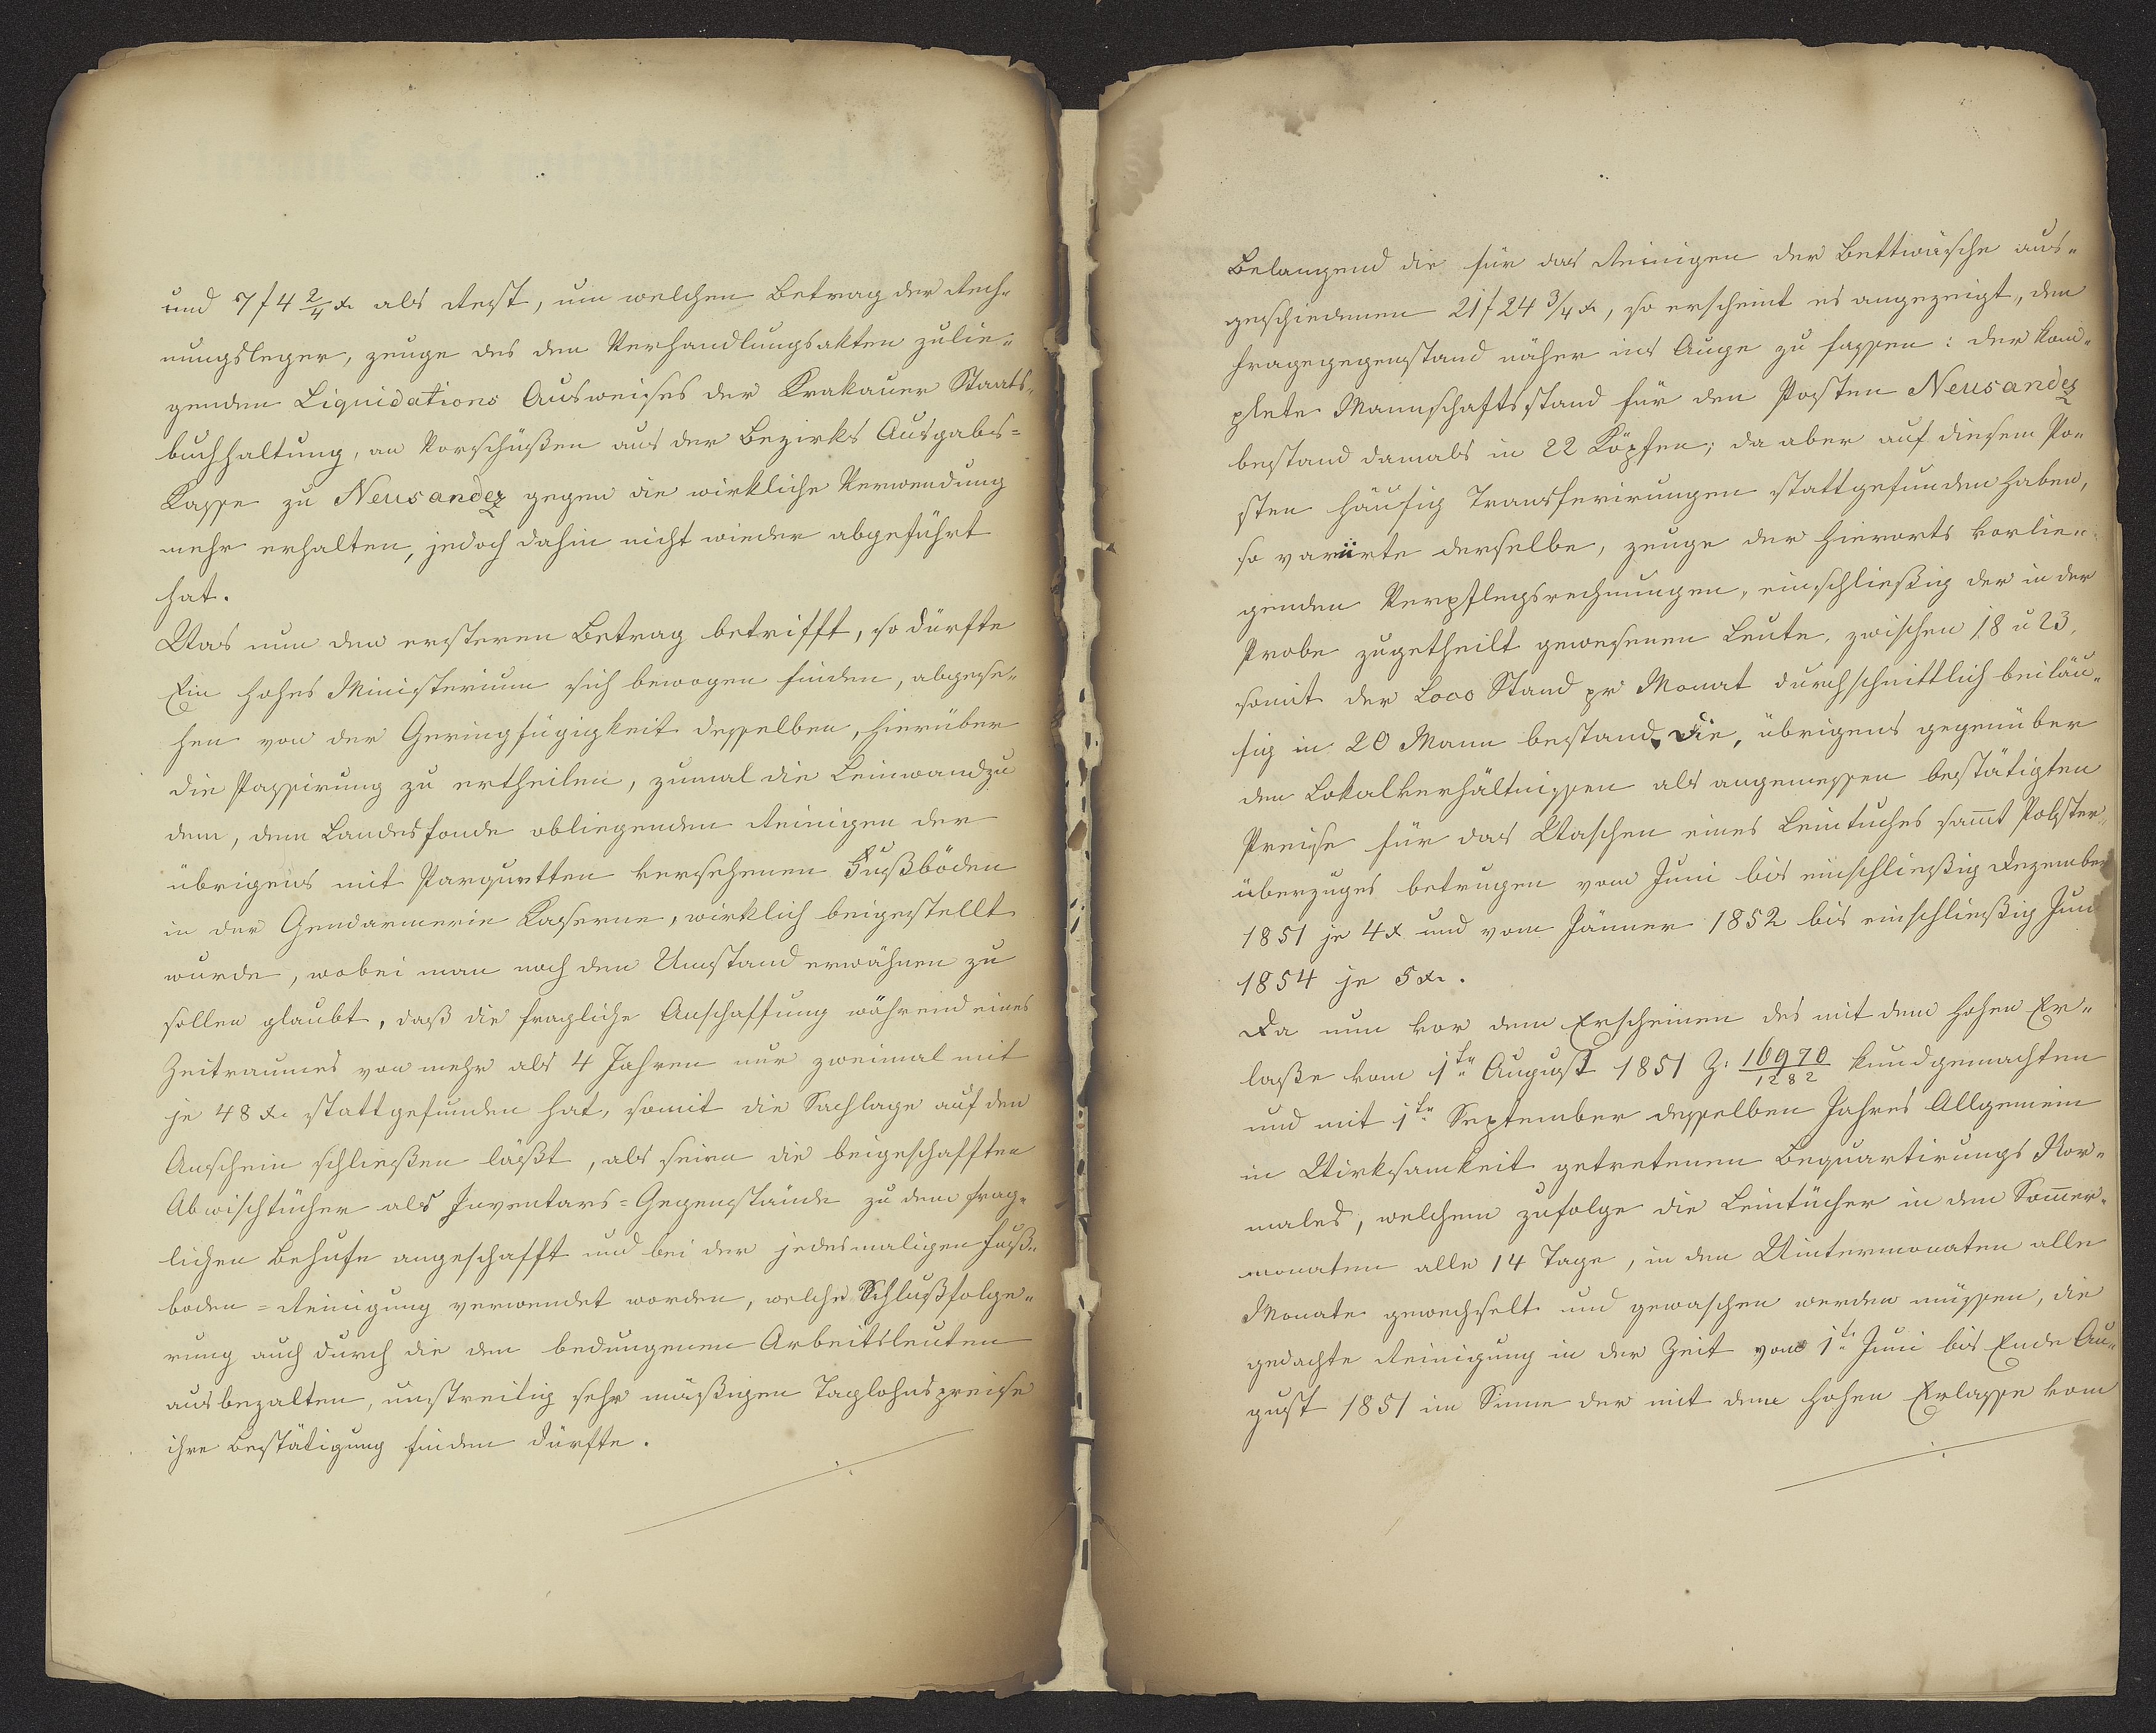 und 7 f 4 2/4 x als Rest, um welchen Betrag der Rech-
nungsleger, zeuge des den Verhandlungsakten zulie-
genden Liquidations Ausweises der Krakauer Staats-
buchhaltung, an Vorschüßen aus der Bezirks Ausgabs-
Kasse zu Neusandez gegen die wirkliche Verwendung
mehr erhalten, jedoch dahin nicht wieder abgeführt
hat.
Was nun den ersteren Betrag betrifft, so dürfte
Ein hohes Ministerium sich bewogen finden, abgese-
hen von der Geringfügigkeit desselben, hierüber
die Passirung zu ertheilen, zumal die Leinwand zu
dem, dem Landesfonde obliegenden Reinigen der
übrigens mit Parquetten versehenen Fußböden
in der Gendarmerie Kaserne, wirklich beigestellt
wurde, wobei man noch den Umstand erwähnen zu
sollen glaubt, daß die fragliche Anschaffung während eines
Zeitraumes von mehr als 4 Jahren nur zweimal mit
je 48 x stattgefunden hat, somit die Sachlage auf den
Anschein schließen läßt, als seien die beigeschafften
Abwischtücher als Inventars-Gegenstände zu dem frag-
lichen Behufe angeschafft und bei der jedesmaligen Fuß-
boden-Reinigung verwendet worden, welche Schlußfolge-
rung auch durch die den bedungenen Arbeitsleuten
ausbezalten, unstreitig sehr mäßigen Taglohnspreise
ihre Bestätigung finden dürfte.
Belangend die für das Reinigen der Bettwäsche aus-
geschiedenen 21 f 24 3/4 x, so erscheint es angezeigt, den
Fragegegenstand näher ins Auge zu fassen: der kom-
plete Mannschaftsstand für den Posten Neusandez
bestand damals in 22 Köpfen; da aber auf diesem Po-
sten häufig Transferirungen stattgefunden haben,
so variirte derselbe, zeuge der hierorts vorlie-
genden Verpflegsrechnungen, einschließig der in der
Probe zugetheilt gewesenen Leute, zwischen 18 u 23,
somit der Loco Stand pr Monat durchschnittlich beiläu-
fig in 20 Mann bestand. Die, übrigens gegenüber
den Lokalverhältnissen als angemessen bestätigten
Preise für das Waschen eines Leintuches samt Polster-
überzuges betrugen vom Juni bis einschließig Dezember
1851 je 4 x und vom Jänner 1852 bis einschließig Juni
1854 je 5 x.
Da nun vor dem Erscheinen des mit dem hohen Er-
laße vom 1ten August 1851 Z: 16970/1282 kundgemachten
und mit 1ten September desselben Jahres Allgemein
in Wirksamkeit getretenen Bequartirungs Nor-
males, welchem zufolge die Leintücher in den Sommer-
monaten alle 14 Tage, in den Wintermonaten alle
Monate gewechselt und gewaschen werden müssen, die
gedachte Reinigung in der Zeit vom 1t. Juni bis Ende Au-
gust 1851 im Sinne der mit dem hohen Erlasse vom